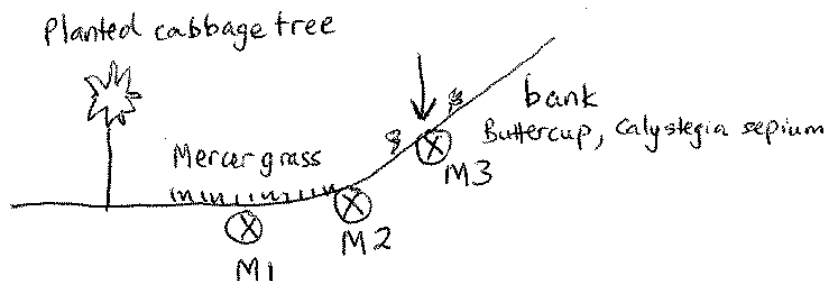 Planted cabbage tree
bank
Buttercup, Calystegia sepium
Mercer grass
M3
M2
M1